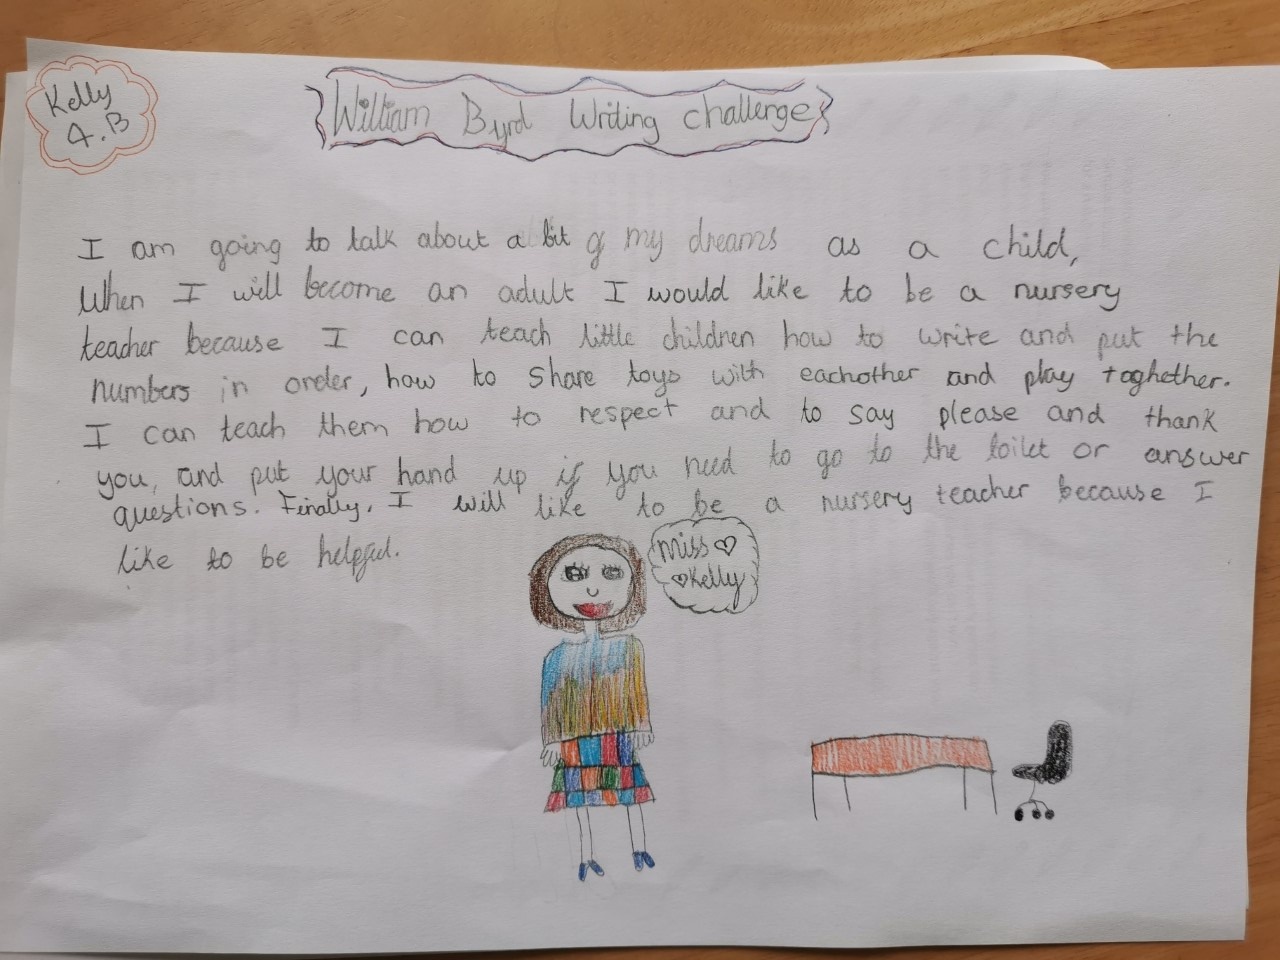 Kelly
4.B
William Byrd Writing challenge
I am going to talk about a bit of my dreams as a child,
When I will become an adult I would like to be a nursery
teacher because I can teach little children how to write and put the
numbers in order, how to share toys with eachother and play toghether.
I can teach them how to respect and to say please and thank
you, and put your hand up if you need to go to the toilet or answer
questions. Finally, I will like to be a nursery teacher because I
like to be helpful.
Miss
Kelly